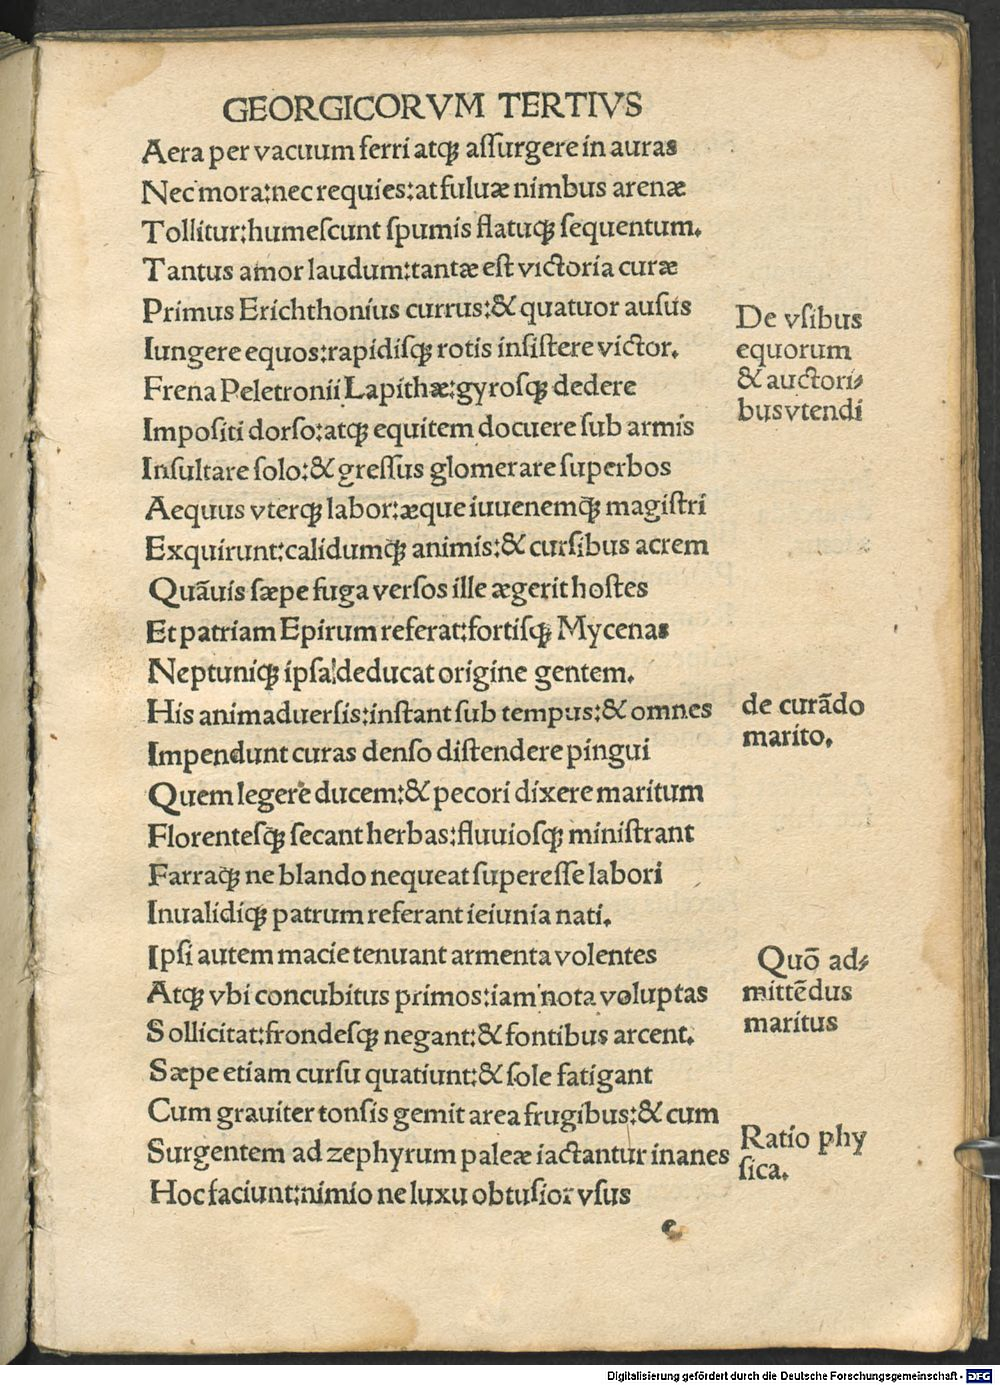 GEORGICORVM TERTIVS
Aera per vacuum ferri atqꝫ aſſurgere in auras
Nec mora:nec requies:at fuluæ nimbus arenæ
Tollitur:humeſcunt ſpumis flatuqꝫ ſequentum.
Tantus amor laudum:tantæ eſt victoria curæ
Primus Erichthonius currus:& quatuor auſus
Iungere equos:rapidiſqꝫ rotis inſiſtere victor.
Frena Peletronii Lapithæ:gyroſqꝫ dedere
Impoſiti dorſo:atqꝫ equitem docuere ſub armis
Inſultare ſolo:& greſſus glomerare ſuperbos
Aequus vterqꝫ labor:æque iuuenemqꝫ magiſtri
Exquirunt:calidumqꝫ animis:& curſibus acrem
Quãuis ſæpe fuga verſos ille ægerit hoſtes
Et patriam Epirum referat:fortiſqꝫ Mycenas
Neptuniqꝫ ipſa deducat origine gentem.
His animaduerſis:inſtant ſub tempus:& omnes
Impendunt curas denſo diſtendere pingui
Quem legere ducem:& pecori dixere maritum
Florenteſqꝫ ſecant herbas:fluuioſqꝫ miniſtrant
Farraqꝫ ne blando nequeat ſupereſſe labori
Inualidiqꝫ patrum referant ieiunia nati.
Ipſi autem macie tenuant armenta volentes
Atqꝫ vbi concubitus primos:iam nota voluptas
Sollicitat:frondeſqꝫ negant:& fontibus arcent.
Sæpe etiam curſu quatiunt:& ſole fatigant
Cum grauiter tonſis gemit area frugibus:& cum
Surgentem ad zephyrum paleæ iactantur inanes
Hoc faciunt:nimio ne luxu obtuſior vſus
e
De vſibus
equorum
& auctori⸗
bus vtendi
de curãdo
marito.
Quõ ad⸗
mittẽdus
maritus
Ratio phy
ſica.
Digitalisierung gefördert durch die Deutsche Forschungsgemeinschaft - DFG